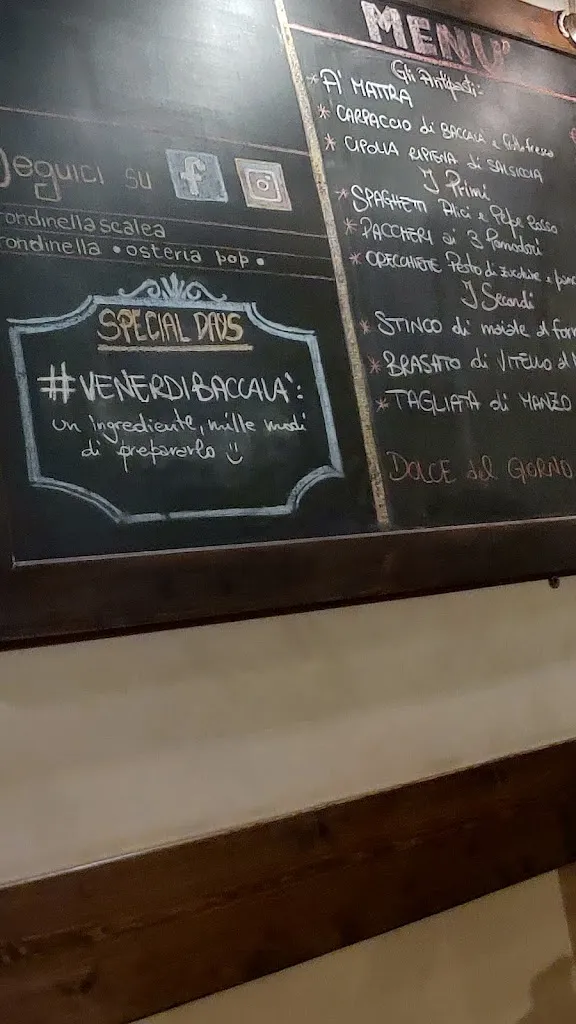 Seguici su
rondinellascalea
rondinella • osteria pop •
SPECIAL DAYS
#VENERDIBACCALA':
un ingrediente, mille modi
di prepararlo
MENU'
Gli Antipasti:
* A' MATTRA
* CARPACCIO di BACCALÀ e
* CIPOLLA RIPIENA di SALSICCIA
I Primi
* SPAGHETTI Alici e Pepe Rosso
* PACCHERI ai 3 Pomodori
* ORECCHIETTE Pesto di zucchine e
I Secondi
* STINCO di maiale al
* BRASATO di VITELLO
* TAGLIATA di MANZO
DOLCE del GIORNO